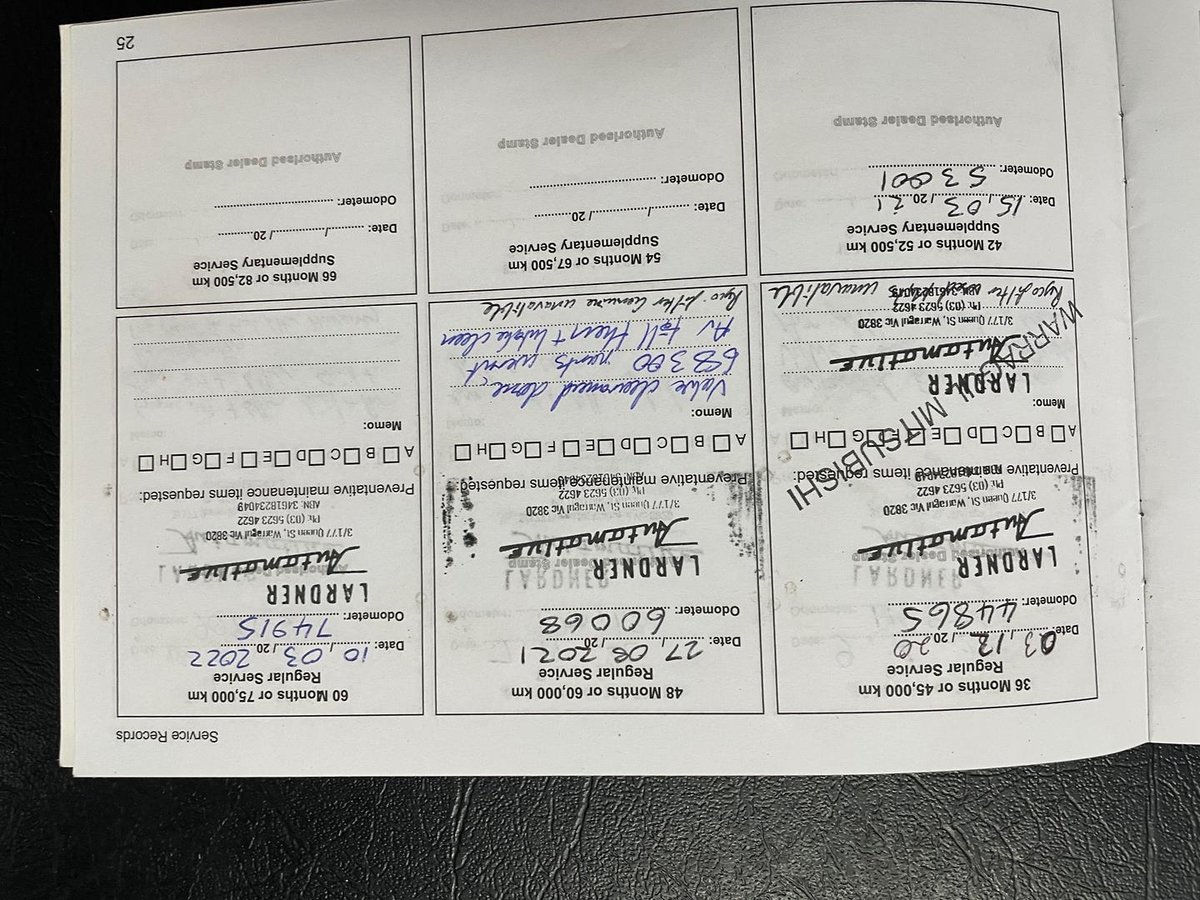 Service Records
36 Months or 45,000 km
Regular Service
Date: 03 / 12 / 20 20
Odometer: 44865
LARDNER
Automative
3/177 Queen St, Warragul Vic 3820
Ph: (03) 5623 4622
Preventative maintenance items requested:
A B C D E F G H
WARRAGUL MITSUBISHI
Memo:
LARDNER
Automative
3/177 Queen St, Warragul Vic 3820
Ph: (03) 5623 4622
ABN: 34618234049
Ryco filter unavatible
42 Months or 52,500 km
Supplementary Service
Date: 15 / 03 / 20 21
Odometer: 53001
Authorised Dealer Stamp
48 Months or 60,000 km
Regular Service
Date: 27 / 08 / 20 2021
Odometer: 60068
LARDNER
Automative
3/177 Queen St, Warragul Vic 3820
Ph: (03) 5623 4622
ABN: 34618234049
Preventative maintenance items requested:
A B C D E F G H
Memo:
Valve clearanced done
68300 parts
till then + Intake clean
Ryco filter Genuine unavatible
54 Months or 67,500 km
Supplementary Service
Date: ........../........../ 20..........
Odometer:
Authorised Dealer Stamp
60 Months or 75,000 km
Regular Service
Date: 10 / 03 / 20 2022
Odometer: 74915
LARDNER
Automative
3/177 Queen St, Warragul Vic 3820
Ph: (03) 5623 4622
ABN: 34618234049
Preventative maintenance items requested:
A B C D E F G H
Memo:
66 Months or 82,500 km
Supplementary Service
Date: ........../........../ 20..........
Odometer:
Authorised Dealer Stamp
25